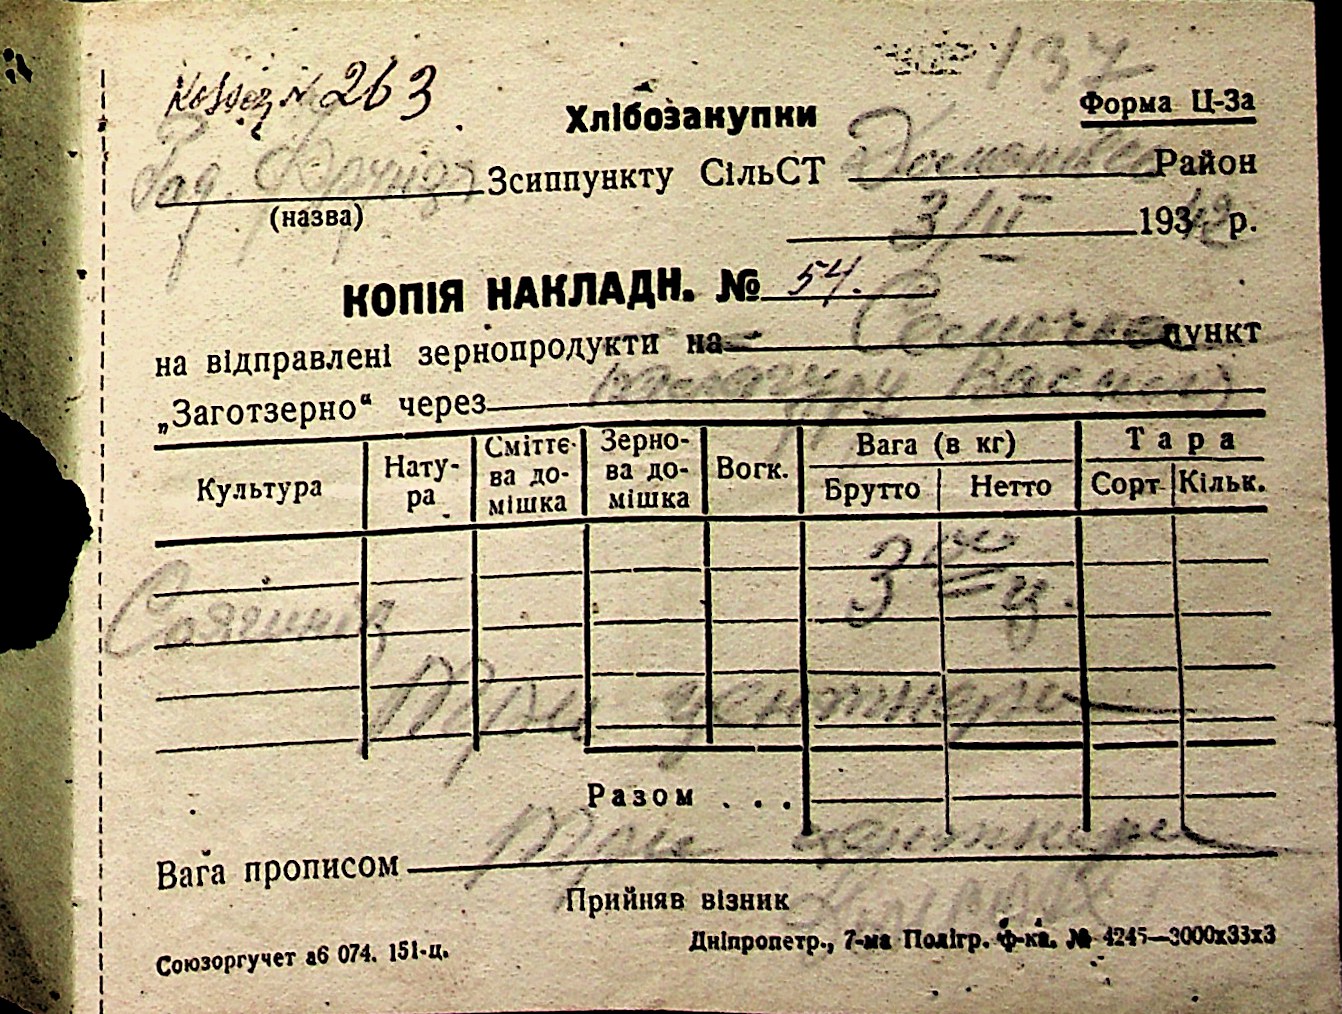 № 263
137
Хлібозакупки
Форма Ц-3а
Рад. Зсиппункту СільСТ Район
(назва)
3/II 1942 р.
КОПІЯ НАКЛАДН. № 54.
на відправлені зернопродукти на пункт
„Заготзерно“ через
Культура
Нату-
ра
Сміттє-
ва до-
мішка
Зерно-
ва до-
мішка
Вогк.
Вага (в кг)
Брутто
Нетто
Тара
Сорт
Кільк.
3 00 ц.
Три центнери
Разом . . .
Вага прописом Три центнери
Прийняв візник
Союзоргучет аб 074. 151-ц.
Дніпропетр., 7-ма Полігр. ф-ка. № 4245—3000х33х3